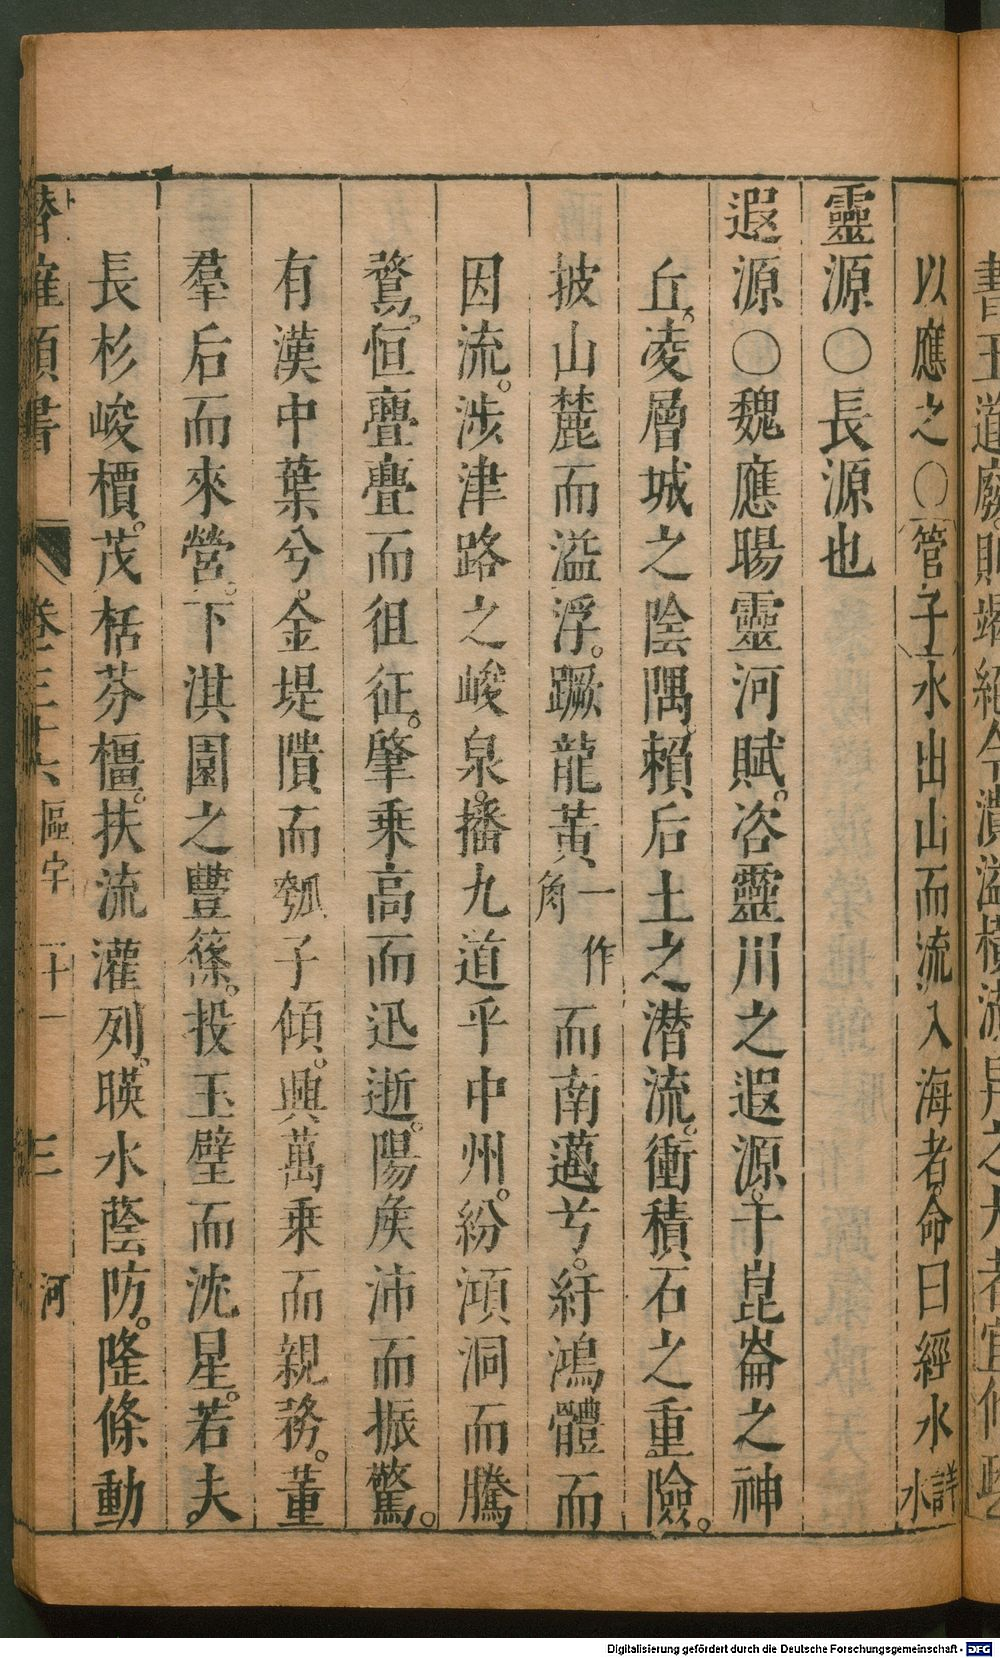 以應之○管子水出山而流入海者命曰經水詳水
靈源○長源也
遐源○魏應瑒靈河賦。咨靈川之遐源。于崑崙之神
丘。凌層城之陰隅。賴后土之潛流。衝積石之重險。
披山麓而溢浮。蹶龍黃一作角而南邁兮。紆鴻體而
因流。涉津路之峻泉。播九道乎中州。紛澒洞而騰
騖。恒亹亹而徂征。肇乘高而迅逝。陽矦沛而振驚。
有漢中葉兮。金堤隤而瓠子傾。興萬乘而親務。董
羣后而來營。下淇園之豐篠。投玉璧而沈星。若夫
長杉峻檟。茂栝芬橿。扶流灌列。暎水蔭防。隆條動
潛確類書 卷三十六 區宇二十一 三 河
Digitalisierung gefördert durch die Deutsche Forschungsgemeinschaft - DFG